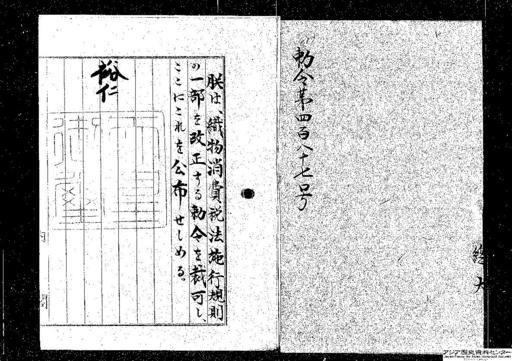 勅令第四百八十七号
朕は、織物消費税法施行規則
の一部を改正する勅令を裁可し、
ここにこれを公布せしめる。
裕仁
アジア歴史資料センター